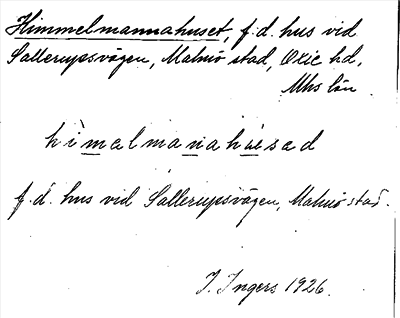 Himmelmannahuset, f.d. hus vid
Sallerupsvägen, Malmö stad, Oxie hd,
Mhs län.
hìmalmanahúsad
f.d. hus vid Sallerupsvägen, Malmö stad.
I. Ingers 1926.